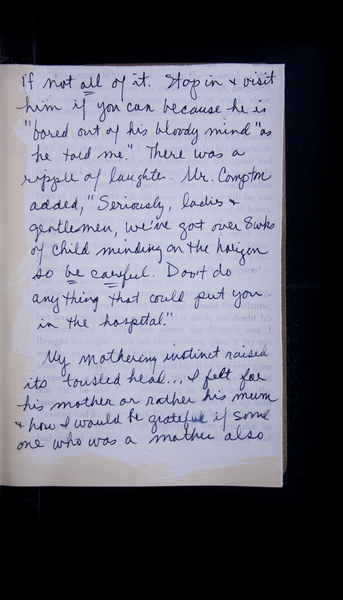 if not all of it. Stop in & visit
him if you can because he is
"bored out of his bloody mind" as
he told me." There was a
ripple of laughter. Mr. Compton
added, "Seriously, ladies &
gentlemen, we've got over 8 wks
of child minding on the horizon
so be careful. Don't do
anything that could put you
in the hospital."
My mothering instinct raised
its tousled head... I felt for
his mother or rather his mum
& how I would be grateful if some
one who was a mother also